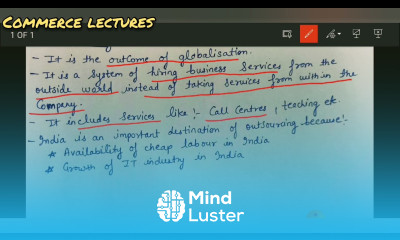 COMMERCE LECTURES
1 OF 1
- It is the outcome of globalisation.
- It is a system of hiring business services from the
outside world, instead of taking services from within the
Company.
- It includes services like :- Call Centres, teaching etc.
- India is an important destination of outsourcing because:-
* Availability of cheap labour in India
* Growth of IT industry in India
Mind
Luster